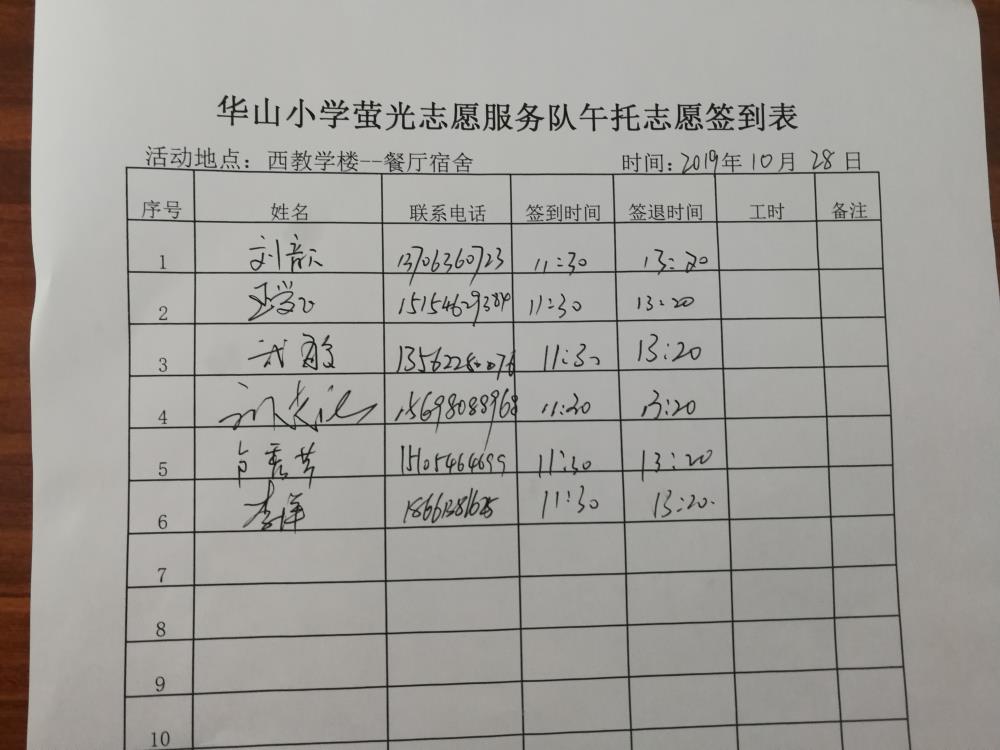 华山小学萤光志愿服务队午托志愿签到表
活动地点：西教学楼--餐厅宿舍 时间：2019年10月28日
序号 姓名 联系电话 签到时间 签退时间 工时 备注
1 刘歆 13706360723 11:30 13:20
2 15154629384 11:30 13:20
3 武敏 11:30 13:20
4 15698088968 11:30 13:20
5 卢秀芳 15105464699 11:30 13:20
6 李洋 11:30 13:20
7
8
9
10